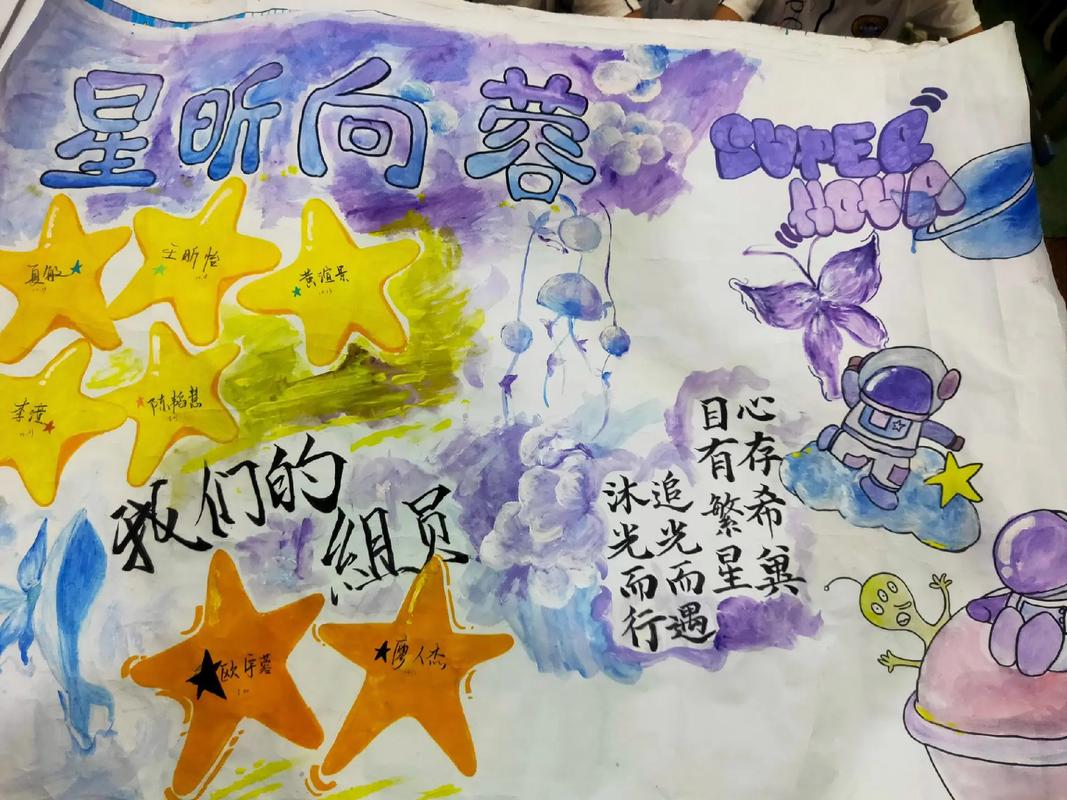 星昕向蓉
SUPER
NOVA
夏敏
王昕怡
黄谊景
李滢
陈韬慧
我们的
組员
欧宇蓉
廖人杰
心存希冀
目有繁星
追光而遇
沐光而行